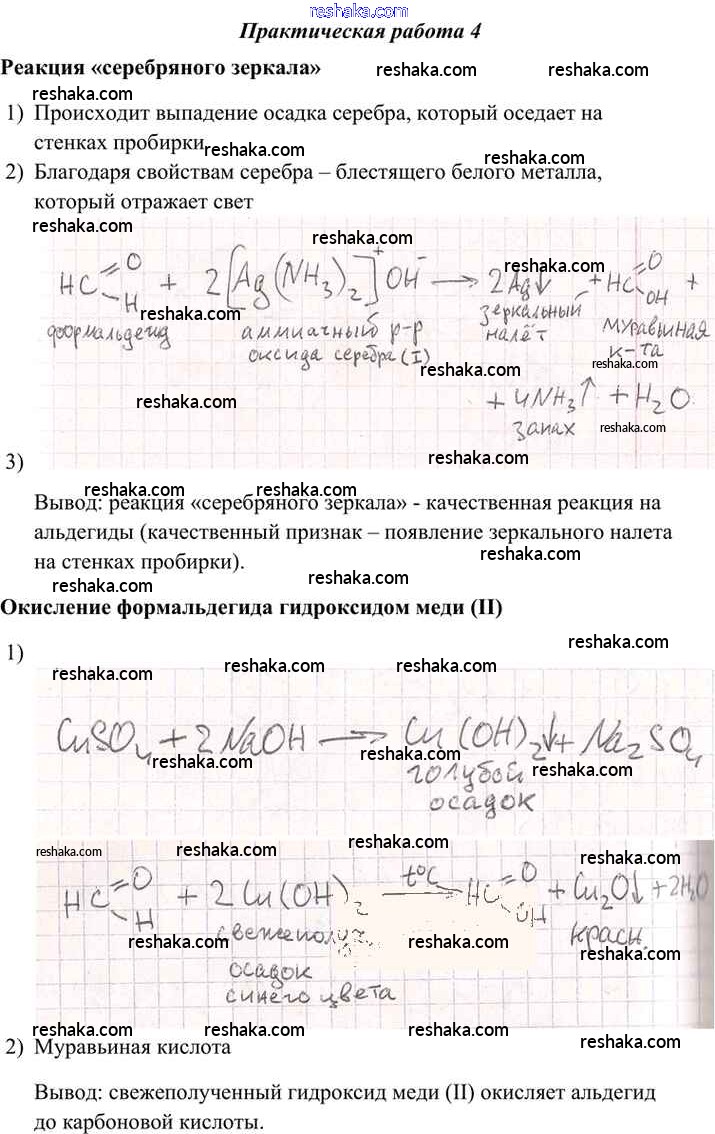 www.reshaka.com
Практическая работа 4
Реакция «серебряного зеркала»
reshaka.com reshaka.com
reshaka.com
1) Происходит выпадение осадка серебра, который оседает на
стенках пробирки
reshaka.com reshaka.com
2) Благодаря свойствам серебра – блестящего белого металла,
который отражает свет
reshaka.com
reshaka.com reshaka.com
HC=O H + 2[Ag(NH₃)₂]⁺OH⁻ → 2Ag↓ + HC=O OH +
reshaka.com
формальдегид аммиачный р-р зеркальный муравьиная
оксида серебра (I) налёт к-та
reshaka.com reshaka.com
reshaka.com
+ 4NH₃↑ + H₂O
запах reshaka.com
3) reshaka.com
reshaka.com reshaka.com
Вывод: реакция «серебряного зеркала» - качественная реакция на
альдегиды (качественный признак – появление зеркального налета
на стенках пробирки).
reshaka.com
reshaka.com
Окисление формальдегида гидроксидом меди (II)
reshaka.com
1)
reshaka.com reshaka.com
reshaka.com
CuSO₄ + 2NaOH → Cu(OH)₂↓ + Na₂SO₄
reshaka.com reshaka.com
reshaka.com
голубой
осадок
reshaka.com reshaka.com reshaka.com
HC=O H + 2Cu(OH)₂ t°C → HC=O OH + Cu₂O↓ + 2H₂O
свежеполуч. красн.
reshaka.com reshaka.com reshaka.com
осадок
синего цвета
reshaka.com reshaka.com reshaka.com
2) Муравьиная кислота
reshaka.com reshaka.com reshaka.com
Вывод: свежеполученный гидроксид меди (II) окисляет альдегид
до карбоновой кислоты.